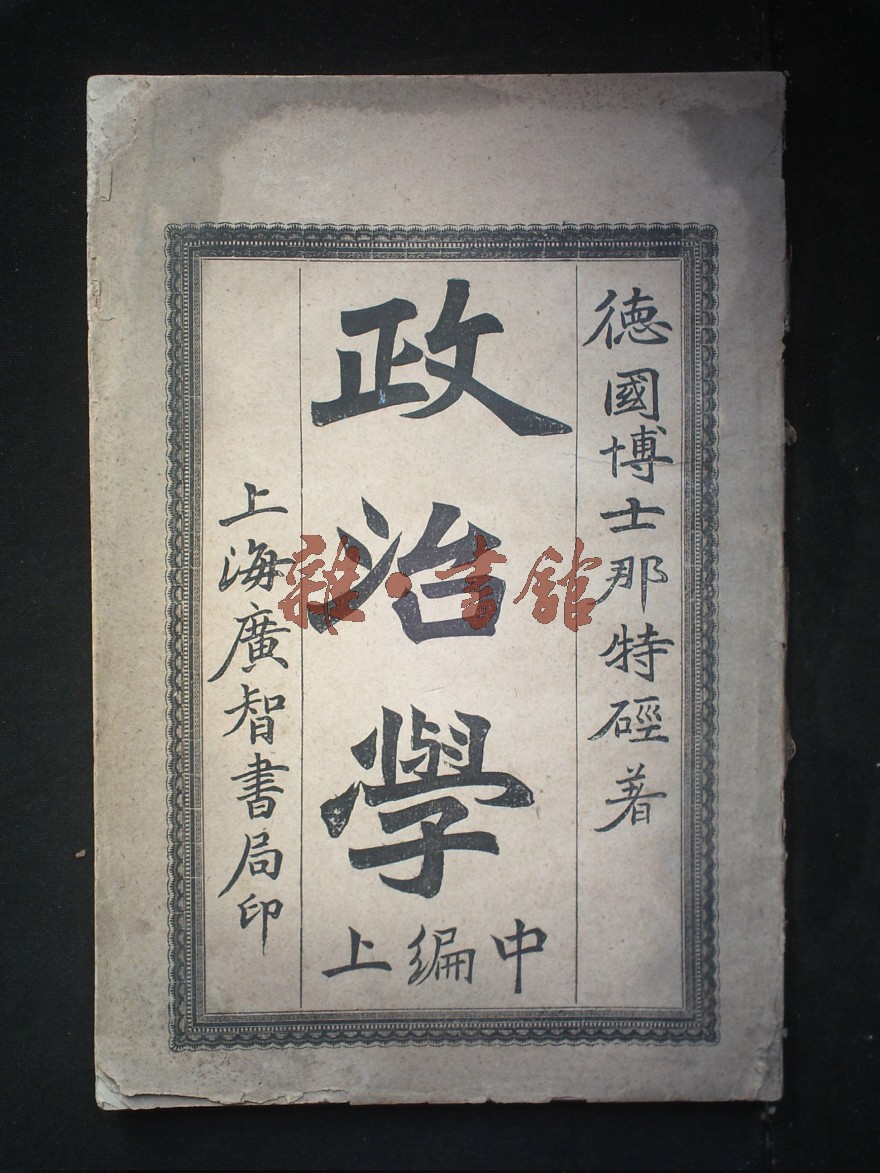 德國博士那特硜著
政治學
中編上
上海廣智書局印
雜·書館